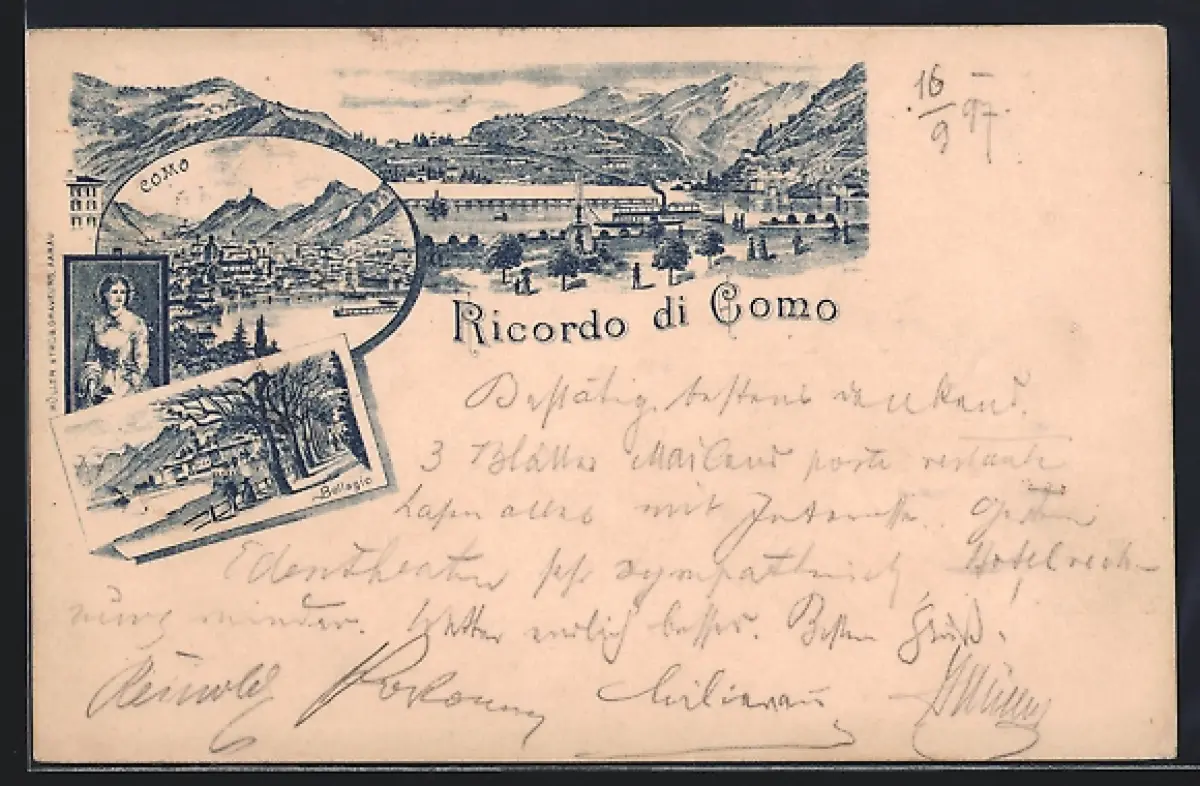 16/9 97.
COMO
MÜLLER & TRÜB, GRAVEURS, AARAU
Ricordo di Como
Bellagio
Bestätige bestens dankend.
3 Blätter Mailand poste restante
Lasen alles mit Interesse. Gestern
Edentheater sehr sympathisch, Hotelrech-
nung minder. Wetter endlich besser. Besten Gruß.
Reinold